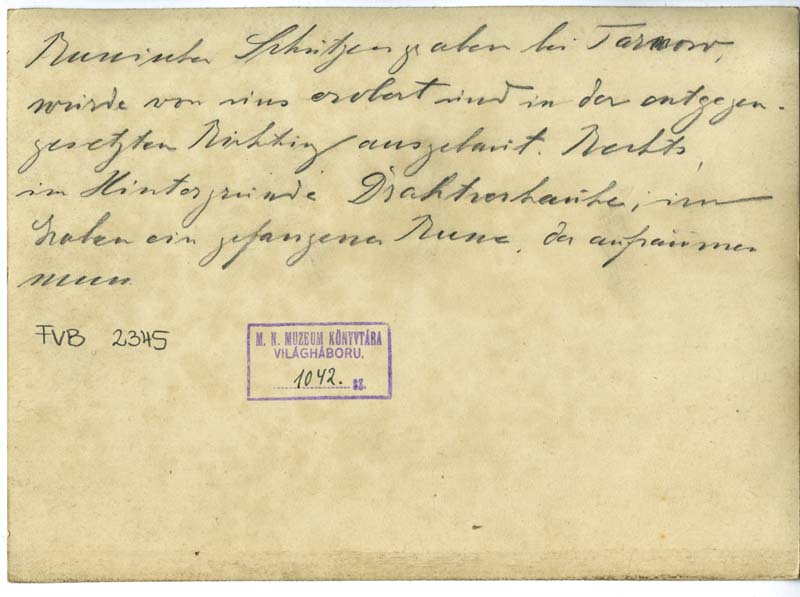 Russischer Schützengraben bei Tarnow,
wurde von uns erobert und in der entgegen-
gesetzten Richtung ausgebaut. Rechts,
im Hintergrunde Drahtverhaue, im
Graben ein gefangener Russe, der aufräumen
muss.
FVB 2345
M. N. MUZEUM KÖNYVTÁRA
VILÁGHÁBORU.
1042. SZ.